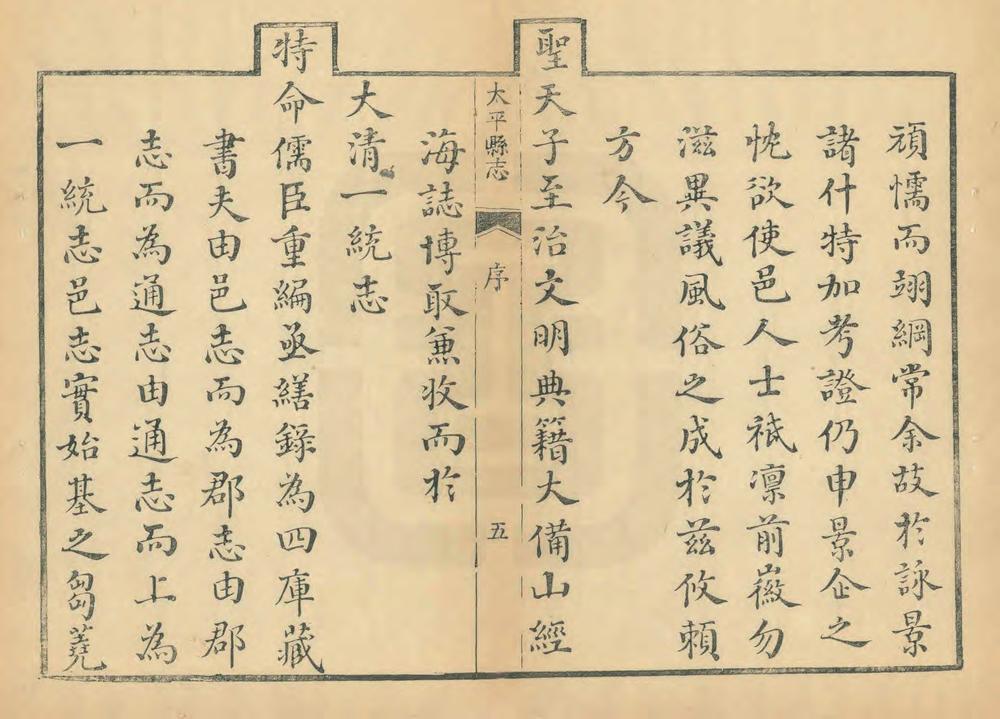 頑懦而翊綱常余故於詠景
諸什特加考證仍申景企之
忱欲使邑人士祇凛前徽勿
滋異議風俗之成於兹攸賴
方今
聖天子至治文明典籍大備山經
太平縣志
序
五
海誌博取兼收而於
大清一統志
特命儒臣重編亟繕錄為四庫藏
書夫由邑志而為郡志由郡
志而為通志由通志而上為
一統志邑志實始基之芻蕘